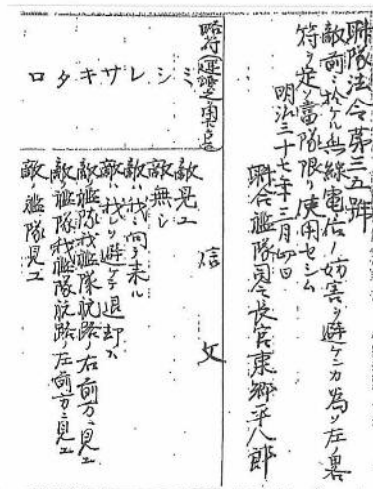 聯隊法令第三五號
敵前ニ於ケル無線電信ノ妨害ヲ避ケンカ為メ左ノ畧
符ヲ定メ當隊限リ使用セシム
明治三十七年三月四日
聯合艦隊司令長官東郷平八郎
略符 信文
ミ 敵見ユ
シ 敵無シ
レ 敵ハ我ニ向テ来ル
ザ 敵ハ我ヲ避ケテ退却ス
キ 敵ノ艦隊我艦隊航路ノ右前方ニ見ユ
タ 敵ノ艦隊我艦隊航路ノ左前方ニ見ユ
ロ 敵ノ艦隊見ユ